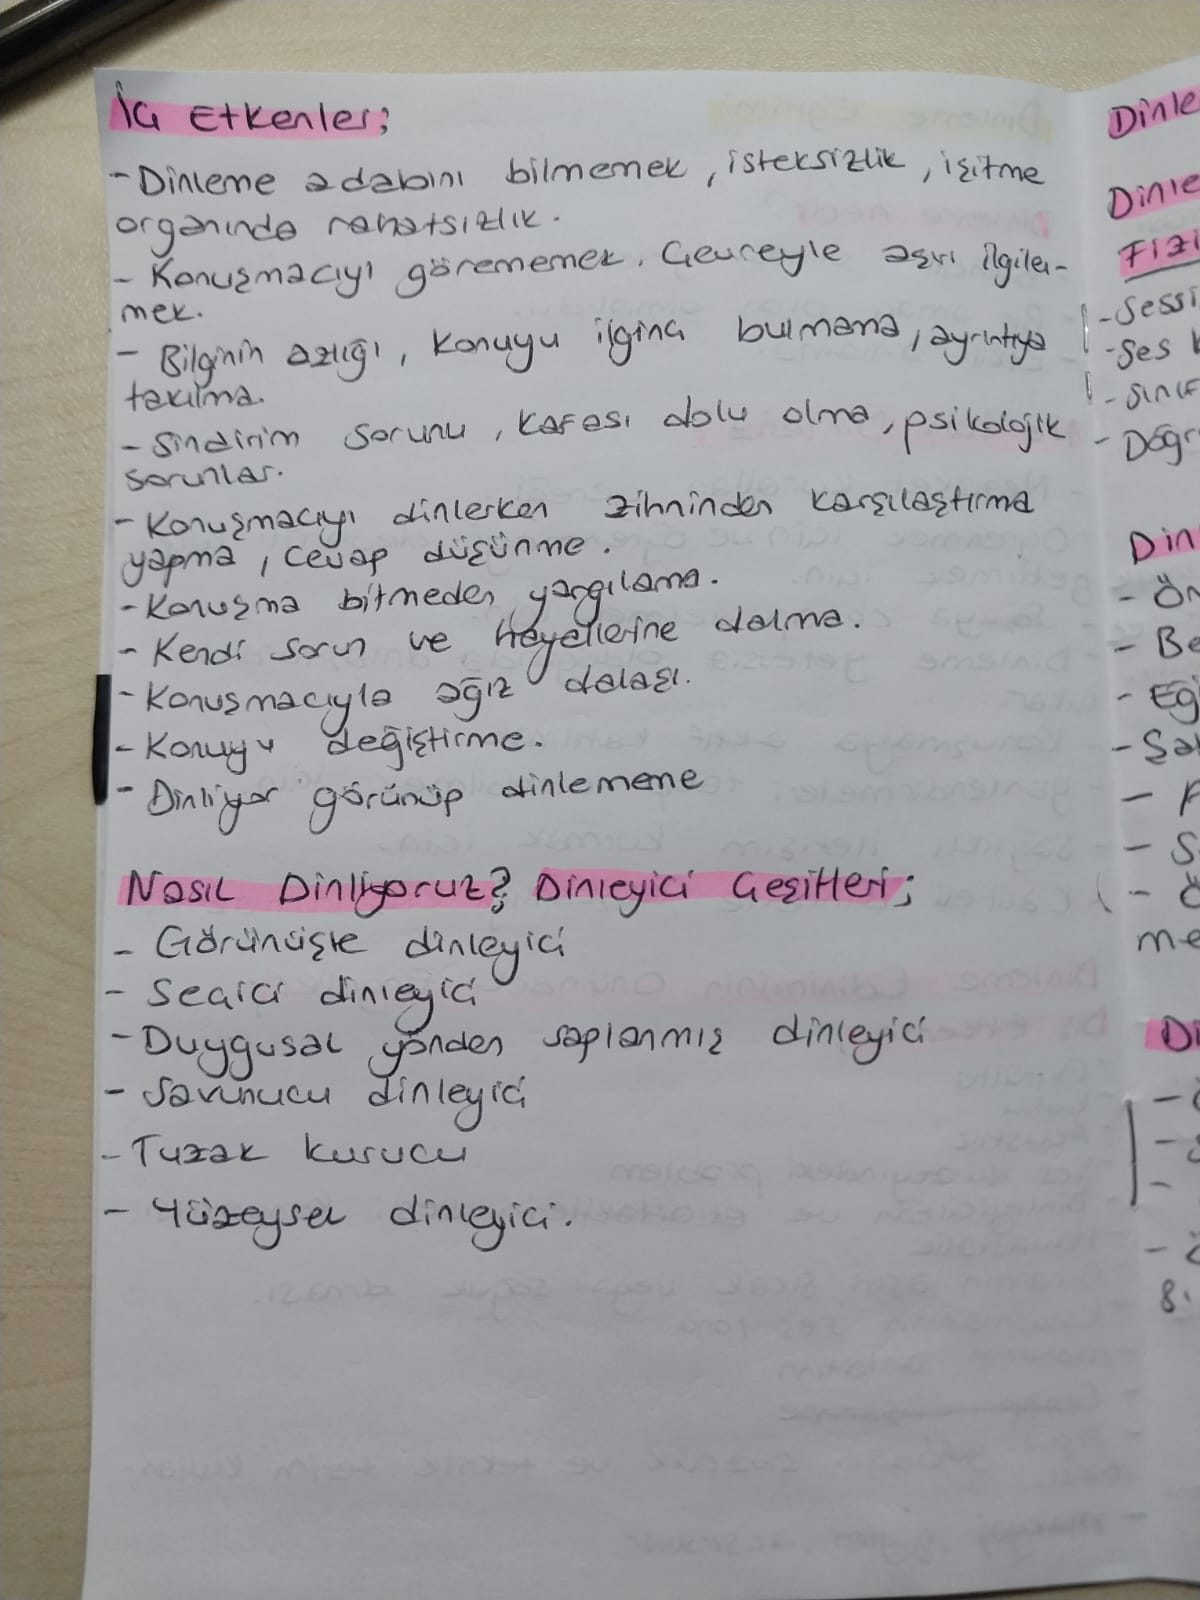 İç Etkenler;
- Dinleme adabını bilmemek, isteksizlik, işitme
organında rahatsızlık.
- Konuşmacıyı görememek. Çevreyle aşırı ilgilen-
mek.
- Bilginin azlığı, konuyu ilginç bulmama, ayrıntıya
takılma.
- Sindirim sorunu, kafası dolu olma, psikolojik
sorunlar.
- Konuşmacıyı dinlerken zihninden karşılaştırma
yapma, cevap düşünme.
- Konuşma bitmeden yargılama.
- Kendi sorun ve hayellerine dalma.
- Konuşmacıyla ağız dalaşı.
- Konuyu değiştirme.
- Dinliyor görünüp dinlememe
Nasıl Dinliyoruz? Dinleyici Çeşitleri;
- Görünüşte dinleyici
- Seçici dinleyici
- Duygusal yönden saplanmış dinleyici
- Savunucu dinleyici
- Tuzak kurucu
- Yüzeysel dinleyici.
Dinle
Dinle
Fizi
- Sessi
- Ses
- Sınıf
- Doğr
Din
- Ön
- Be
- Eğ
- Şa
me
Di
8.